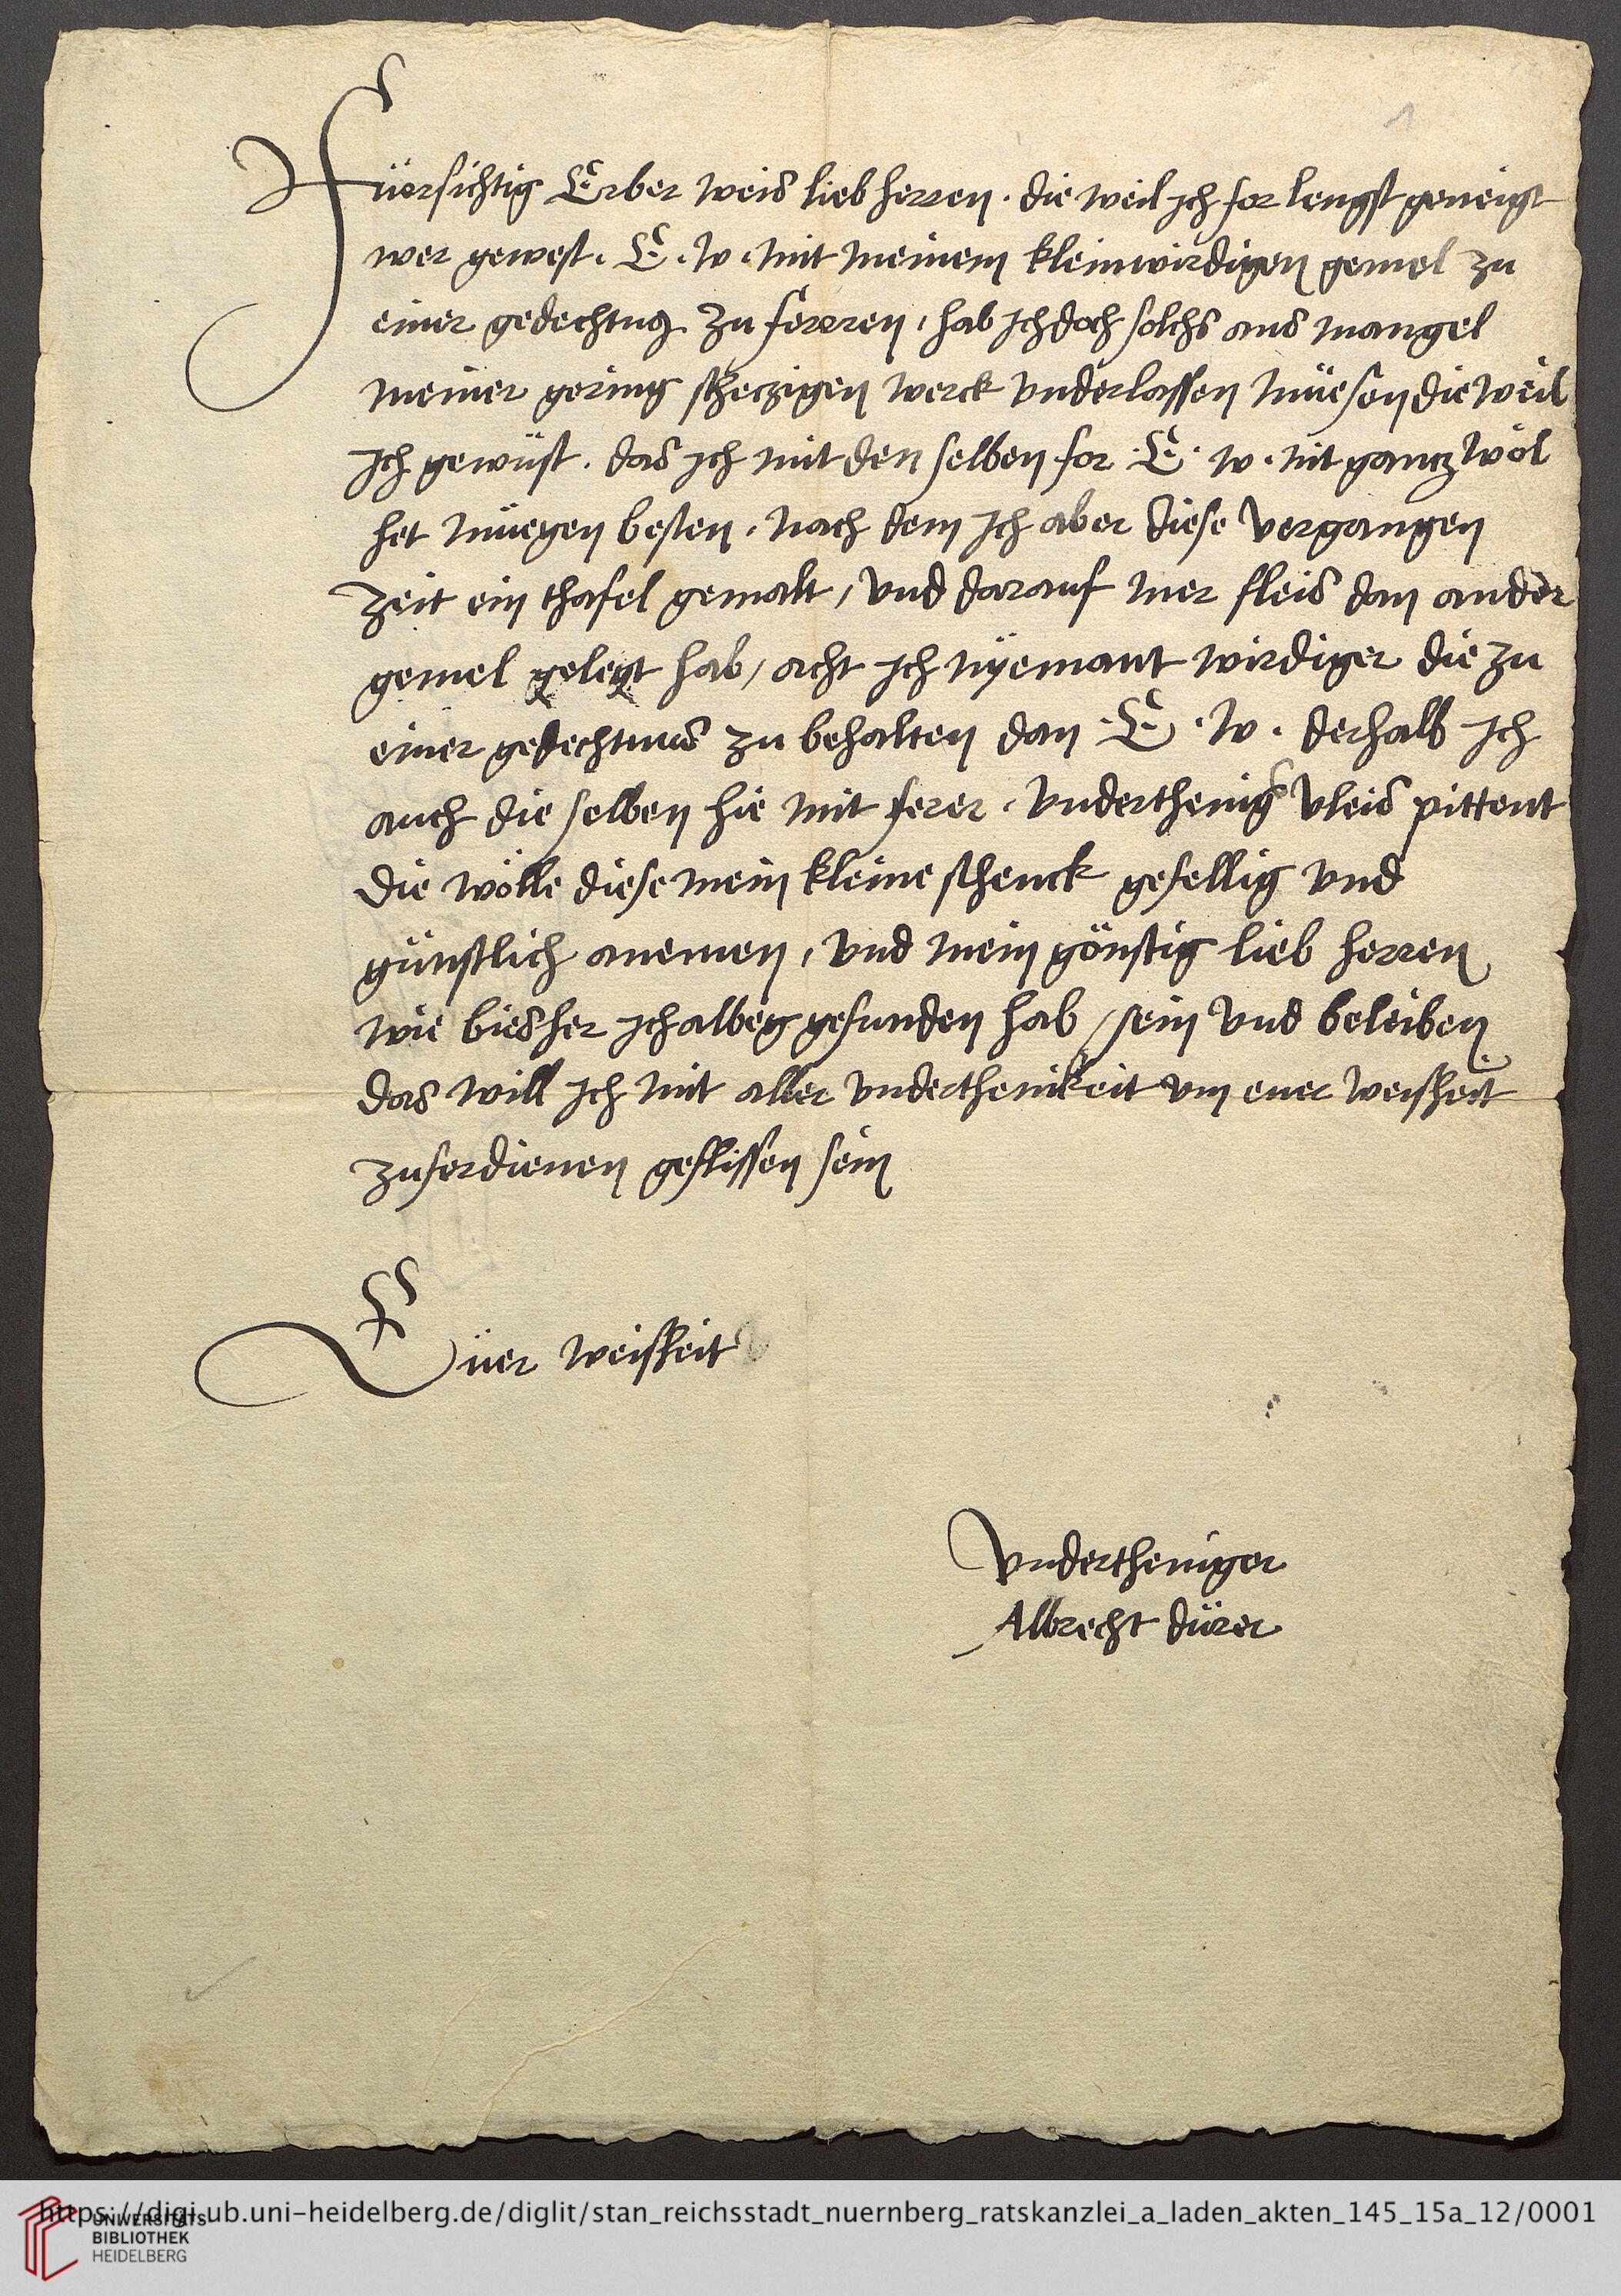 Füersichtig Erber weis lieb herren · die weil jch for lengst geneigt
wer gewest · E · w · mit meinem kleinwirdigen gemel zu
einer gedechtnus zu fereren, hab jch doch solchs aus mangel
meiner gering scheczigen werck vnderlassen müesen die weil
jch gewüst · das jch mit den selben for · E · w · nit gancz wol
het müegen besten · nach dem jch aber diese vergangen
zeit ein thafel gemalt / vnd darauf mer fleis dan ander
gemel gelegt hab / acht jch nyemant wirdiger die zu
einer gedechtnus zu behalten dan · E · w · derhalb jch
auch die selben hie mit ferer · vnderthenigs vleis pittent
die wölle diese mein kleine schenck gefellig vnd
günstlich anemen, vnd mein gönstig lieb herren
wie biesher jch albeg gefunden hab / sein vnd beleiben
das will jch mit aller vnderthenikeit vm euer weisheit
zuferdienen geflissen sein
Eüer weisheit
vndertheniger
Albrecht dürer
1
https://digi.ub.uni-heidelberg.de/diglit/stan_reichsstadt_nuernberg_ratskanzlei_a_laden_akten_145_15a_12/0001
UNIVERSITÄTS-
BIBLIOTHEK
HEIDELBERG